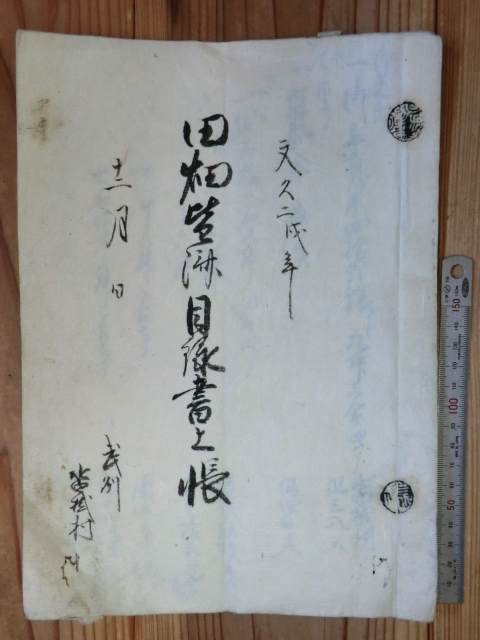 文久二戌年
田畑皆済目録書上帳
十二月日
武州
村
150
100
50